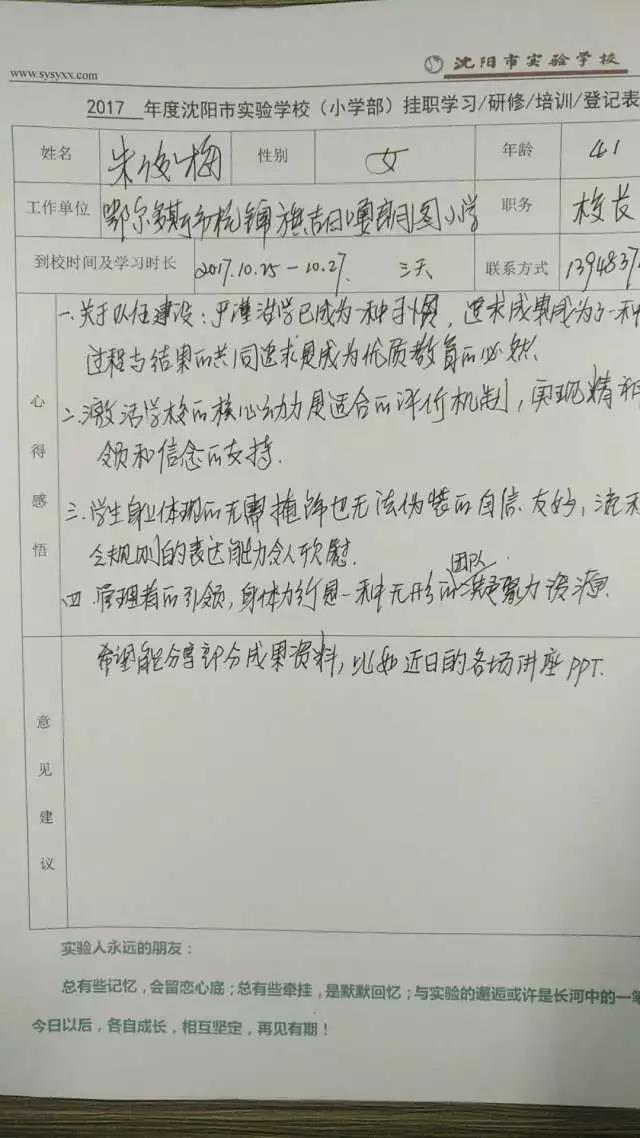 www.sysyxx.com
沈阳市实验学校
2017 年度沈阳市实验学校（小学部）挂职学习/研修/培训/登记表
姓名 朱俊梅 性别 女 年龄 41
工作单位 鄂尔多斯市杭锦旗吉日嘎朗图小学 职务 校长
到校时间及学习时长 2017.10.25－10.27. 三天 联系方式 1394837
心得感悟
一.关于队伍建设：严谨治学已成为一种习惯，追求成果成为了一种
过程与结果的共同追求更成为优质教育的必然.
二.激活学校的核心动力是适合的评价机制，实现精神
领和信念的支持.
三.学生身上体现的无需掩饰也无法伪装的自信.友好，流利
令规则的表达能力令人欣慰.
团队
四.管理者的引领，身体力行是一种无形的凝聚力资源.
意见建议
希望能分享部分成果资料，比如近日的各场讲座PPT.
实验人永远的朋友：
总有些记忆，会留恋心底；总有些牵挂，是默默回忆；与实验的邂逅或许是长河中的一笔
今日以后，各自成长，相互坚定，再见有期！